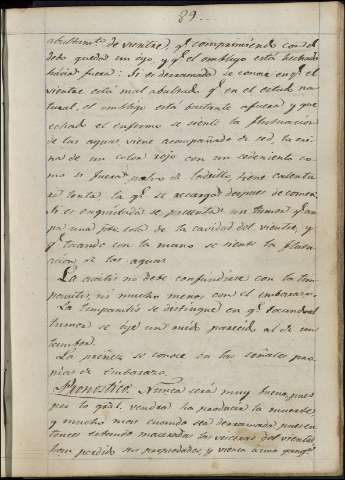 89.
abultamto. de vientre, qe. comprimiendo con el
dedo queda un oyo, y qe. el ombligo está hechado
hácia fuera: Si es derramada se conoce en qe. el
vientre está mas abultado qe. en el estado na-
tural, el ombligo está bastante afuera y que
echado el enfermo se siente la fluctuacion
de las aguas viene acompañada de sed, la ori-
na de un color rojo con un sedimento co-
mo si fuera polvo de ladrillo, tiene calentu-
ra lenta, la qe. se recarga despues de comer.
Si es enquistada se presenta un tumor qe. ocu-
pa una pte. sola de la cavidad del vientre, y
qe. tocando con la mano se siente la fluctu-
acion de las aguas.
La ascitis no debe confundirse con la tim-
panitis, ni mucho menos con el embarazo.
La timpanitis se distingue en qe. tocando el
tumor se oye un ruido parecido al de un
tambor.
La preñez se conoce en las señales pro-
pias de embarazo.
Pronostico. Nunca será muy bueno, pues
por lo gral. vendra ha producir la muerte
y mucho mas cuando sea derramada pues en-
tonces estando maceradas las viceras del vientre
han perdido sus propiedades, y